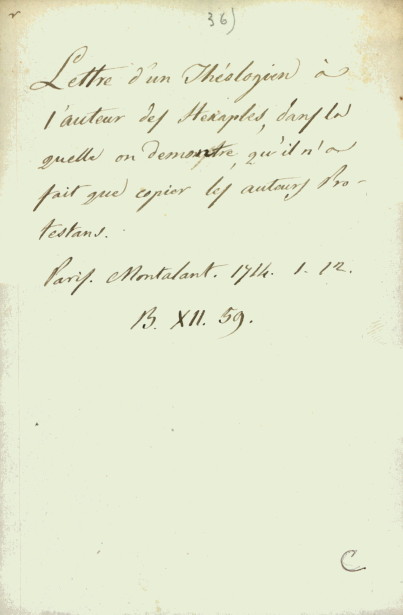 36)
Lettre d'un Théologien à
l'auteur des Hexaples, dans la
quelle on demontre, qu'il n'a
fait que copier les auteurs Pro-
testans.
Paris. Montalant. 1714. 1. 12.
B. XII. 59.
C